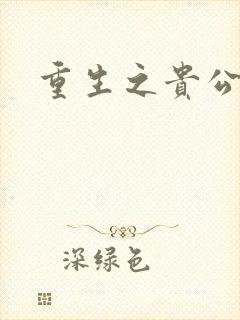 重生之貴公
深绿色